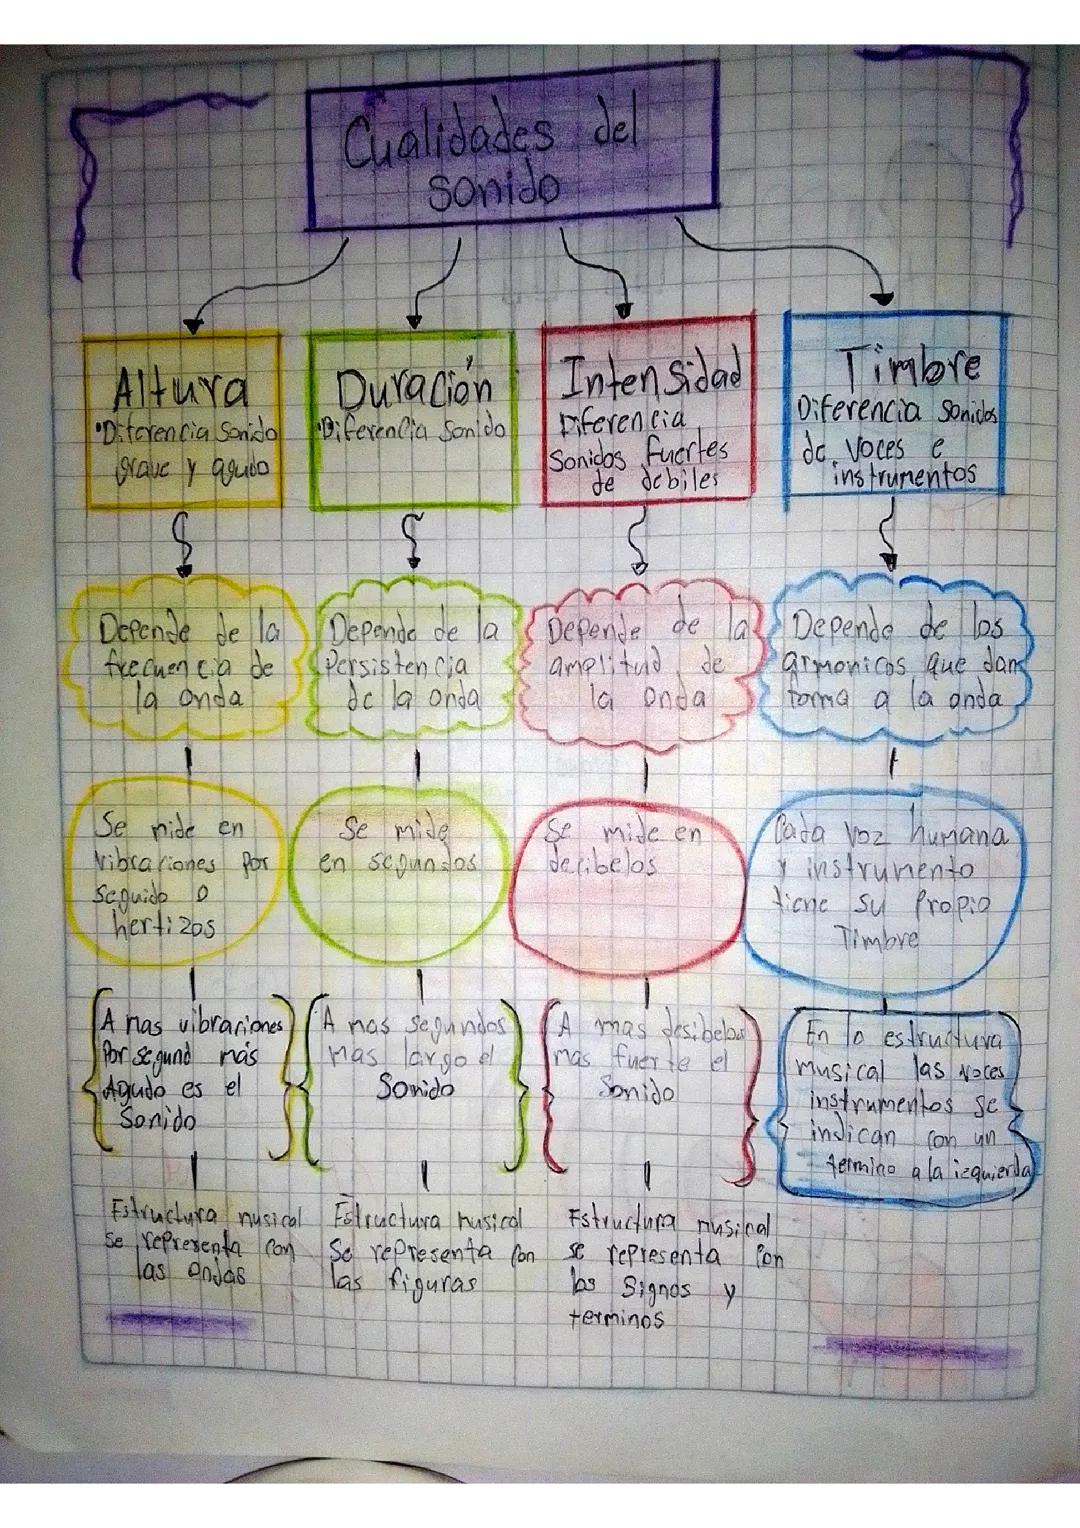 Cualidades del
sonido
Altura
•Diferencia Sonido
grave y agudo
Duración
•Diferencia Sonido
Intensidad
Diferencia
Sonidos fuertes
de debiles
Timbre
Diferencia Sonidos
de voces e
instrumentos
Depende de la
frecuencia de
la onda
Depende de la
Persistencia
de la onda
Depende de la
amplitud de
la onda
Depende de los
armonicos que dan
forma a la onda
Se mide en
vibraciones por
seguido o
hertizos
Se mide
en segundos
Se mide en
decibelos
Cada voz humana
y instrumento
tiene su Propio
Timbre
A mas vibraciones
Por segund más
Agudo es el
Sonido
A mas segundos
mas largo el
Sonido
A mas desibelos
mas fuerte el
Sonido
En la estructura
musical las voces
instrumentos se
indican con un
termino a la izquierda
Estructura musical
se representa con
las ondas
Estructura musical
Se representa con
las figuras
Estructura musical
se representa con
los Signos y
terminos